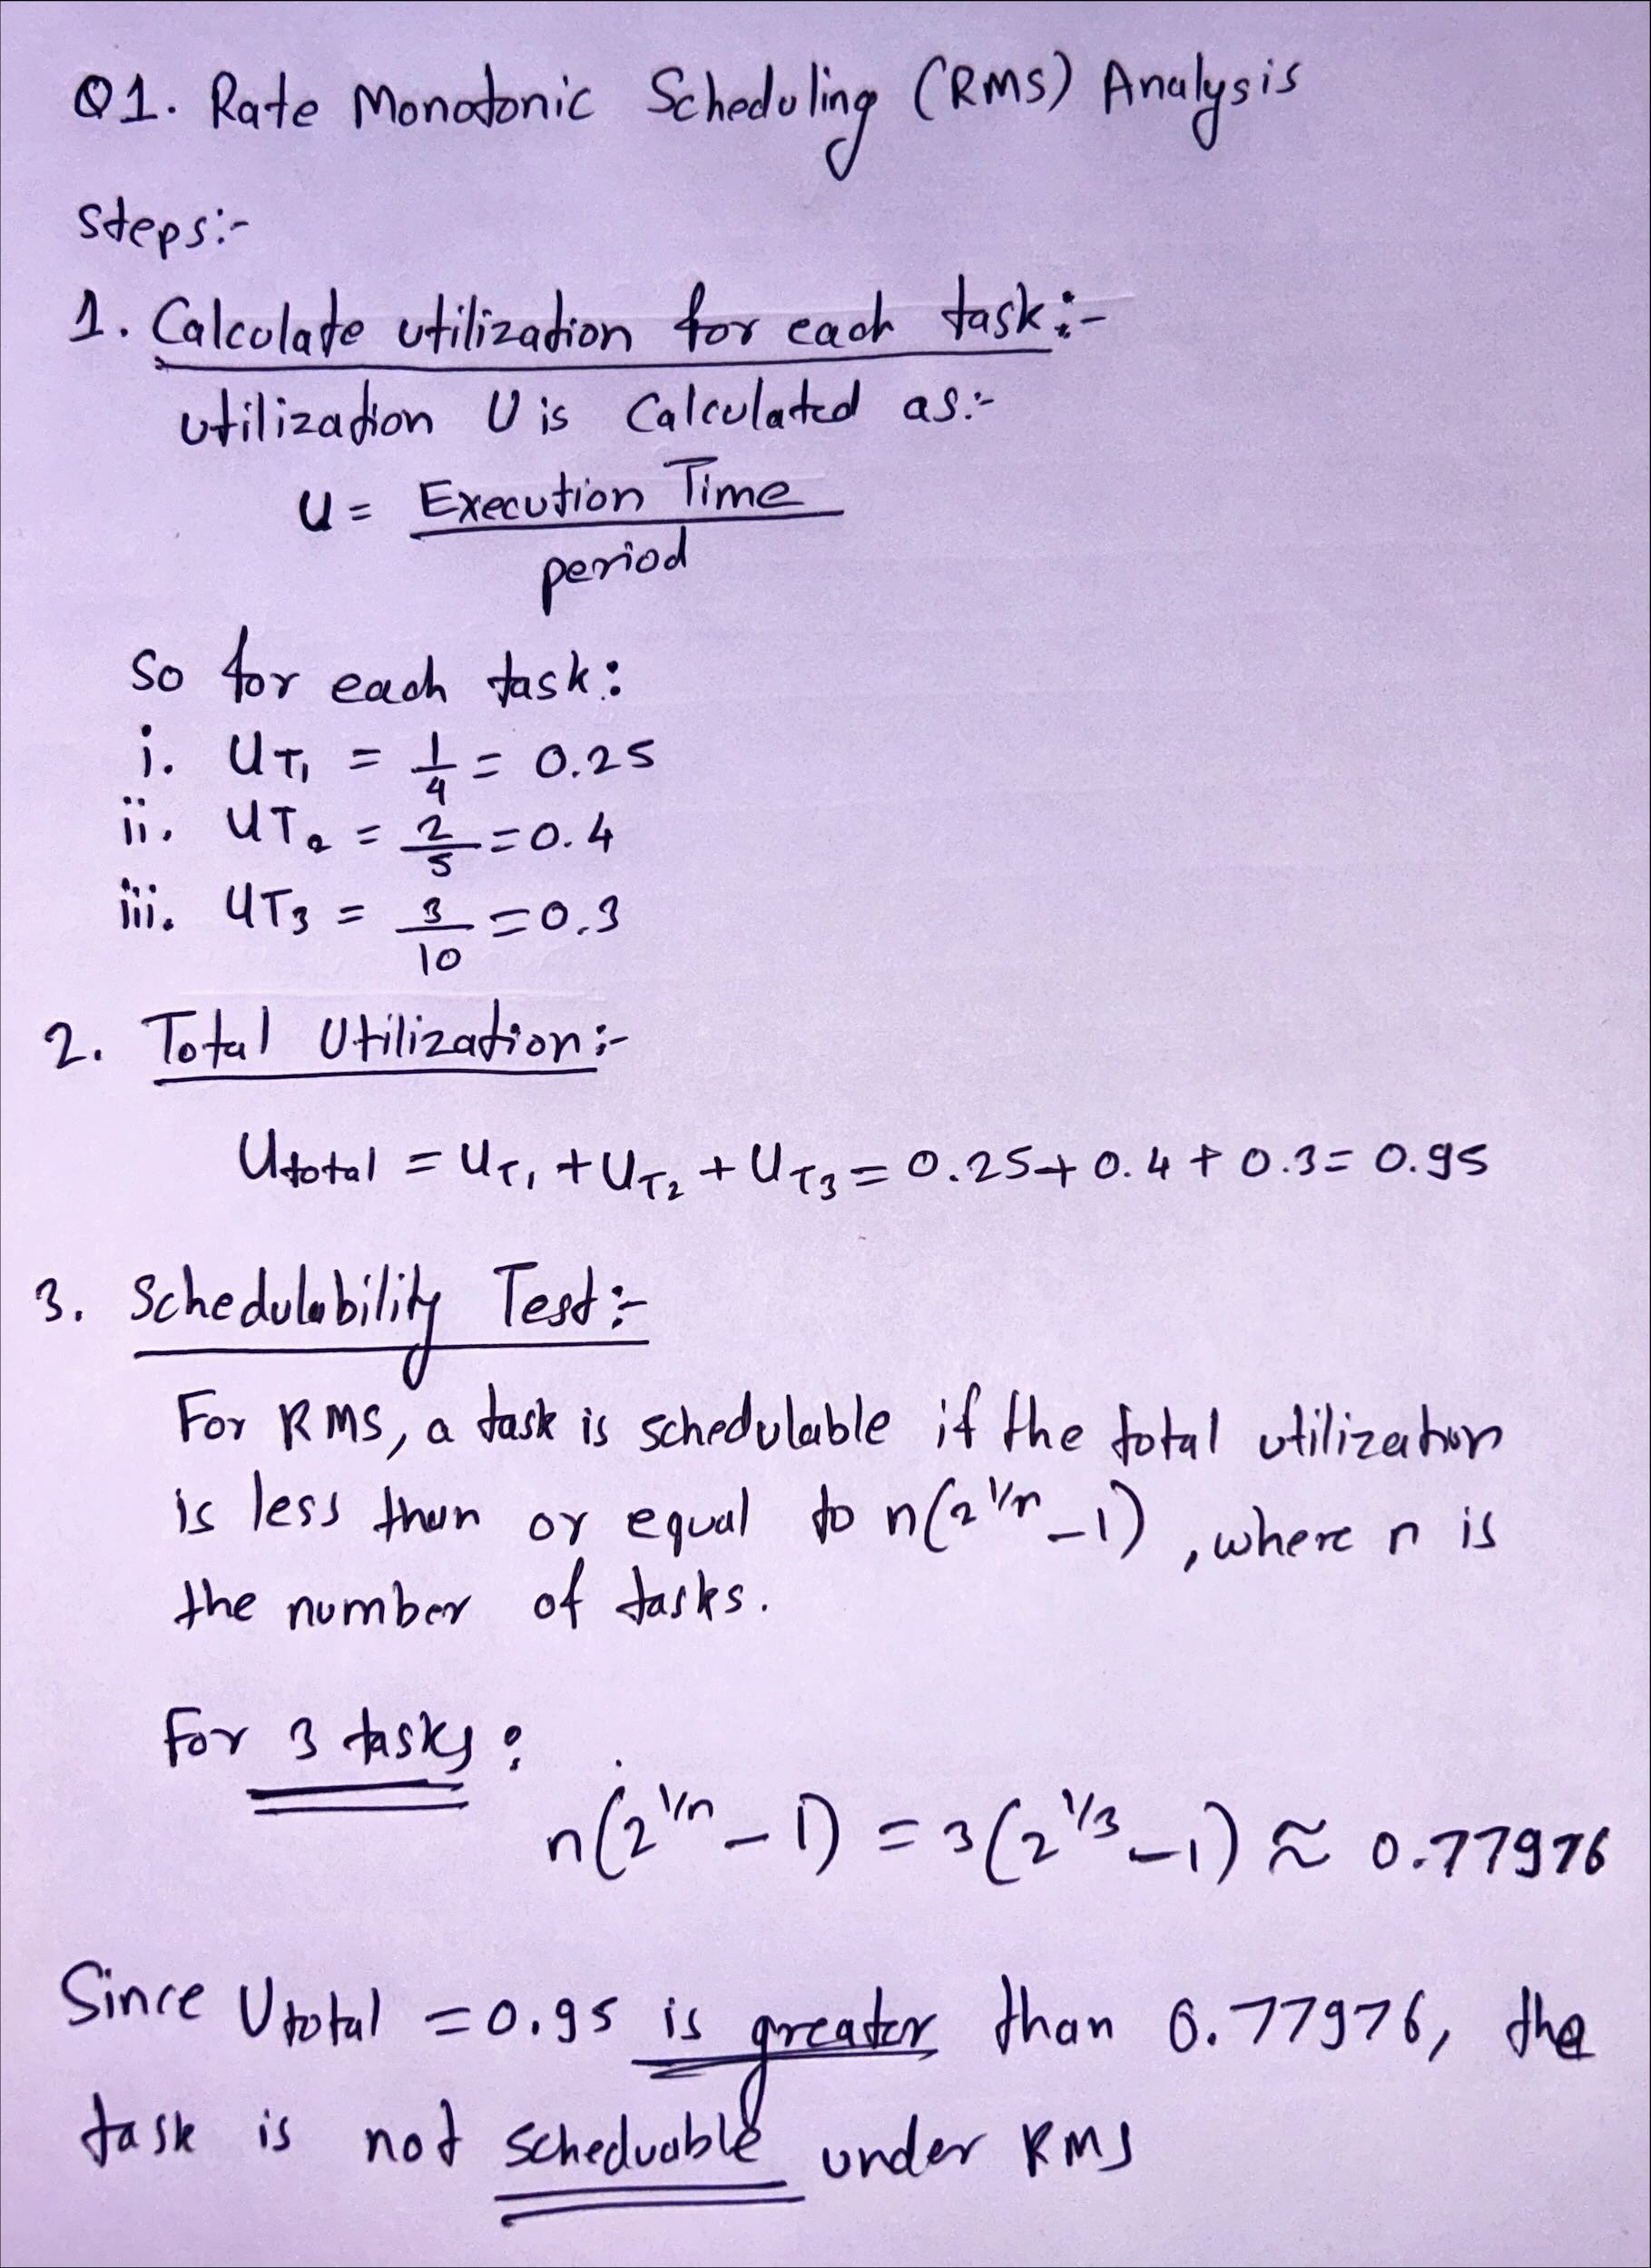 Q1. Rate Monotonic Scheduling (RMS) Analysis
Steps:-
1. Calculate utilization for each task:-
utilization U is Calculated as:-
U = Execution Time
period
So for each task:
i. UT1 = 1/4 = 0.25
ii. UT2 = 2/5 = 0.4
iii. UT3 = 3/10 = 0.3
2. Total Utilization:-
Utotal = UT1 + UT2 + UT3 = 0.25 + 0.4 + 0.3 = 0.95
3. Schedulability Test:-
For RMS, a task is schedulable if the total utilization
is less than or equal to n(2^1/n - 1), where n is
the number of tasks.
For 3 tasks:
n(2^1/n - 1) = 3(2^1/3 - 1) ≈ 0.77976
Since Utotal = 0.95 is greater than 0.77976, the
task is not scheduable under RMS